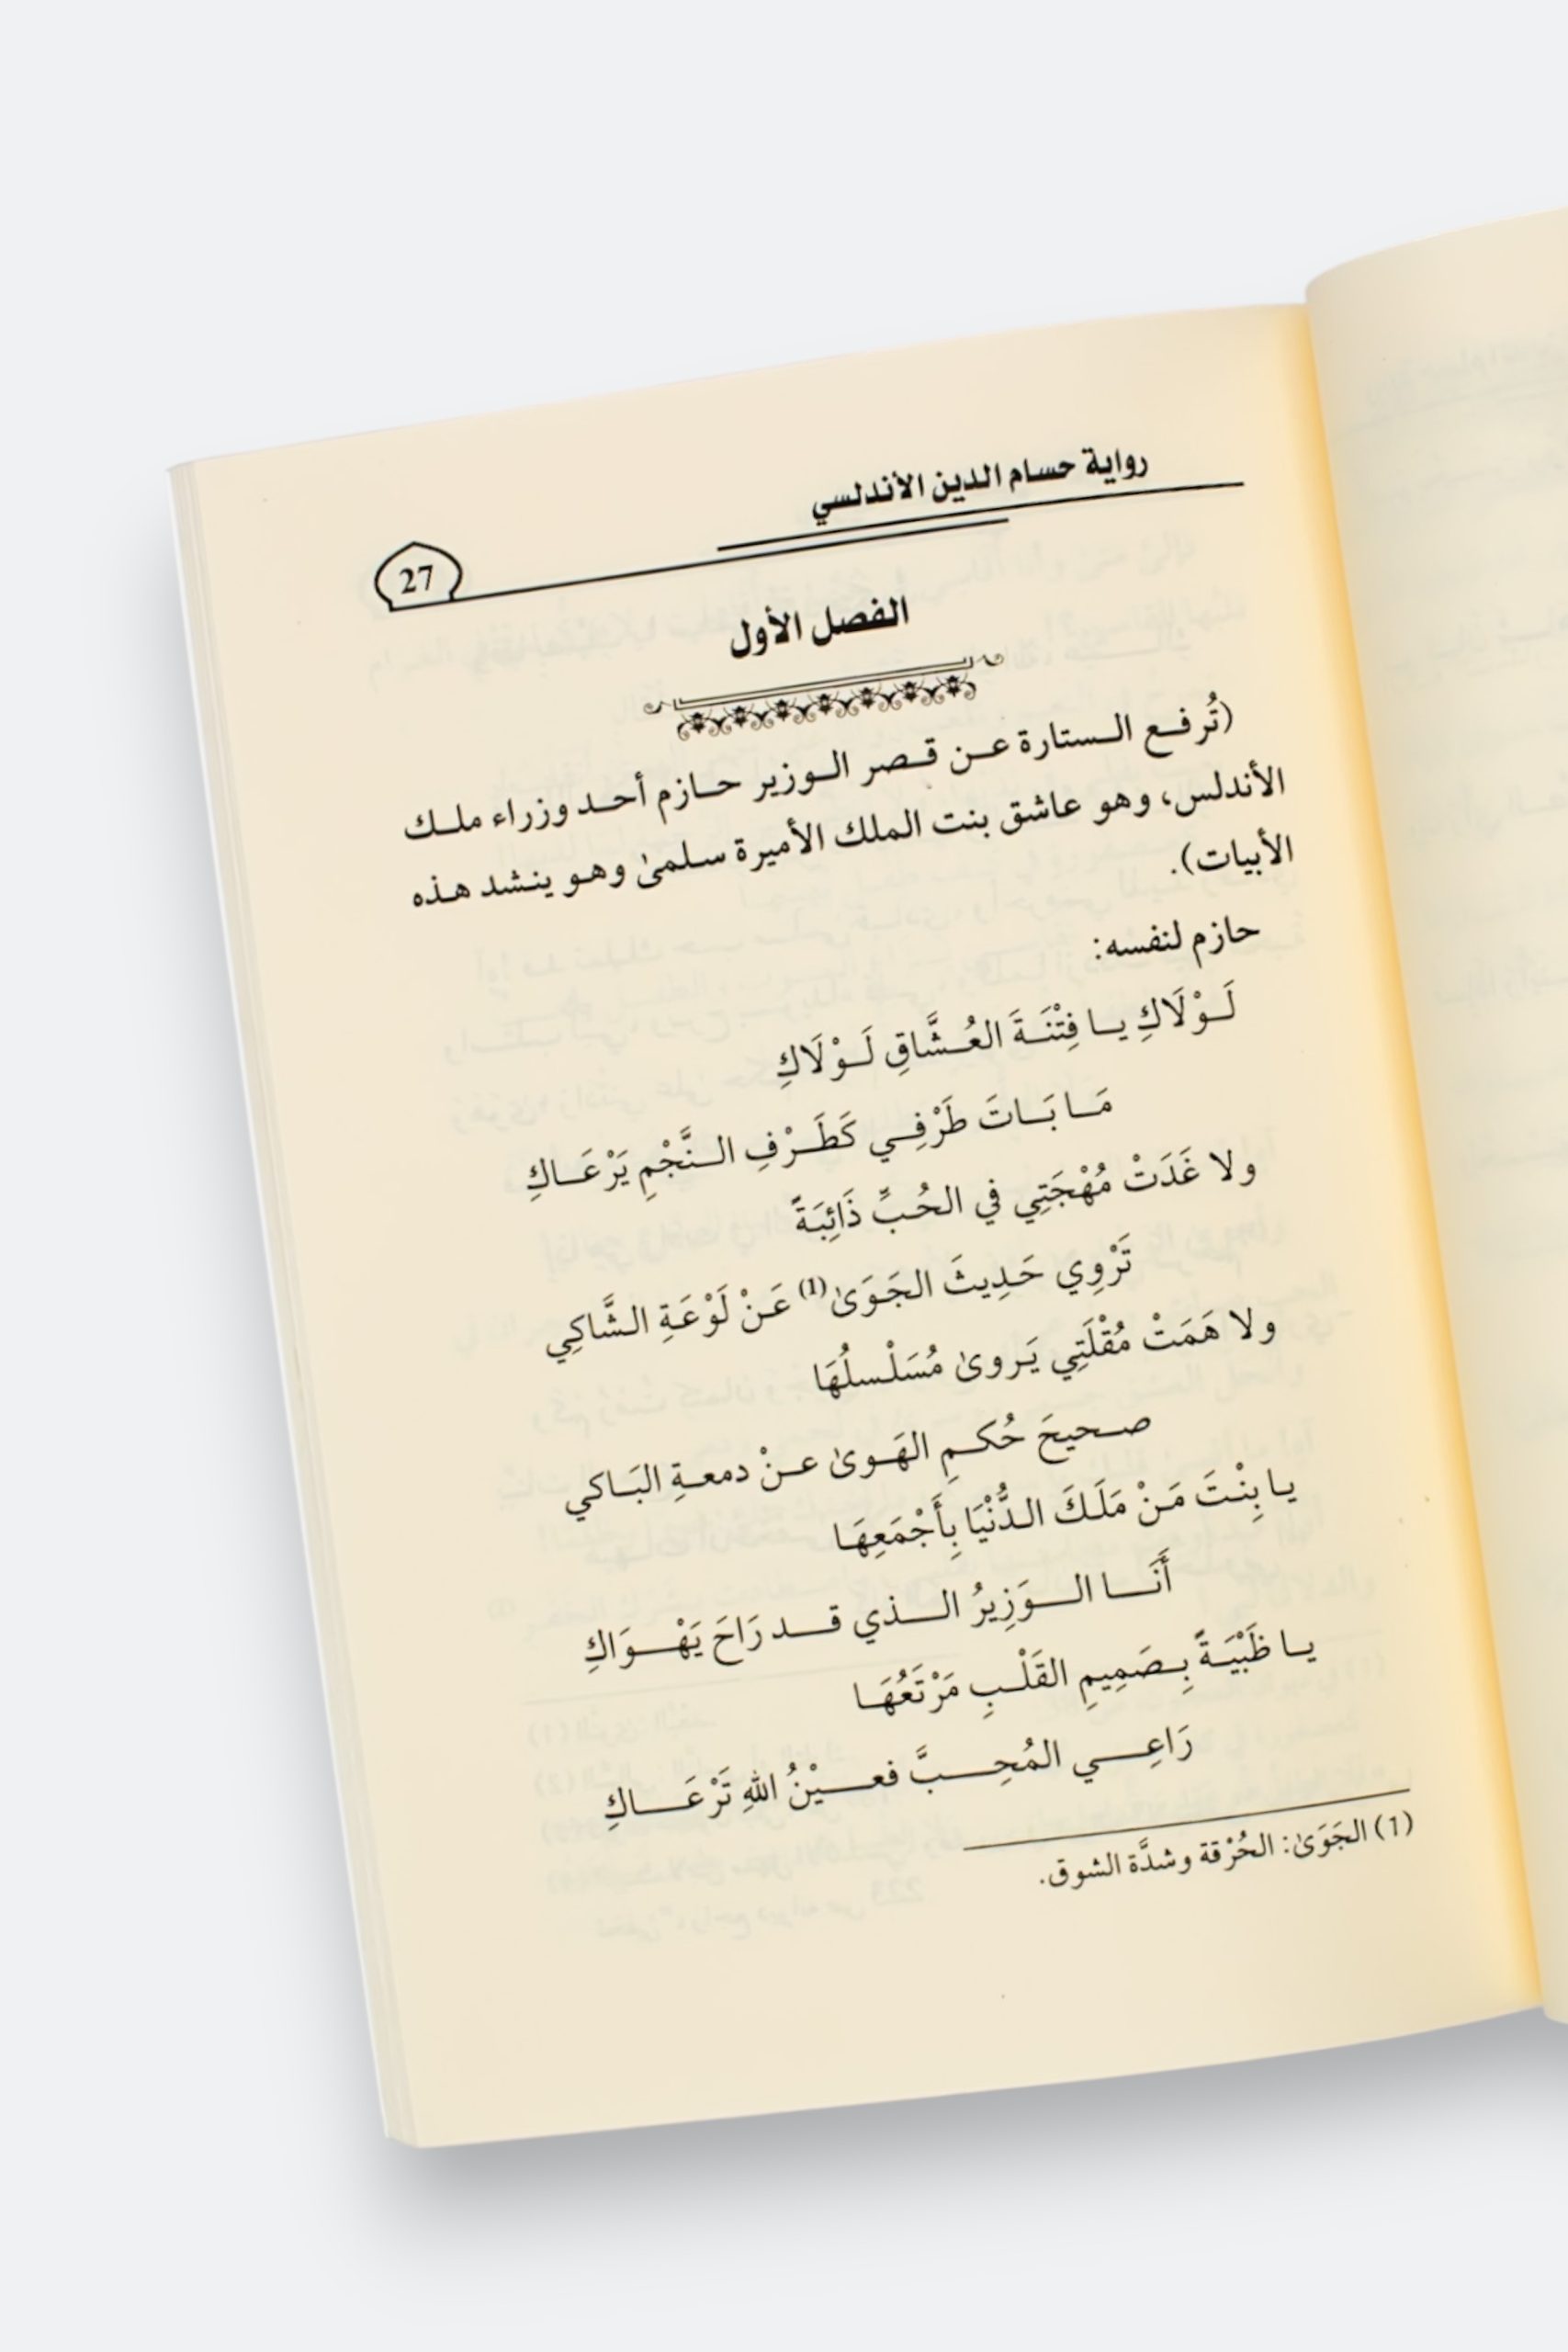 رواية حسام الدين الأندلسي
27
الفصل الأول
(تُرفع الستارة عن قصر الوزير حازم أحد وزراء ملك
الأندلس، وهو عاشق بنت الملك الأميرة سلمىٰ وهو ينشد هذه
الأبيات).
حازم لنفسه:
لَوْلَاكِ يا فِتْنَةَ العُشَّاقِ لَوْلَاكِ
مَا بَاتَ طَرْفِي كَطَرْفِ النَّجْمِ يَرْعَاكِ
ولا غَدَتْ مُهْجَتِي في الحُبِّ ذَائِبَةً
تَرْوِي حَدِيثَ الجَوَىٰ(1) عَنْ لَوْعَةِ الشَّاكِي
ولا هَمَتْ مُقْلَتِي يَروىٰ مُسَلْسلُهَا
صحيحَ حُكمِ الهَوىٰ عنْ دمعةِ البَاكي
يا بِنْتَ مَنْ مَلَكَ الدُّنْيَا بِأَجْمَعِهَا
أَنَا الوَزِيرُ الذي قد رَاحَ يَهْوَاكِ
يا ظَبْيَةً بِصَمِيمِ القَلْبِ مَرْتَعُهَا
رَاعِي المُحِبَّ فعيْنُ اللهِ تَرْعَاكِ
(1) الجَوَىٰ: الحُرْقة وشدَّة الشوق.